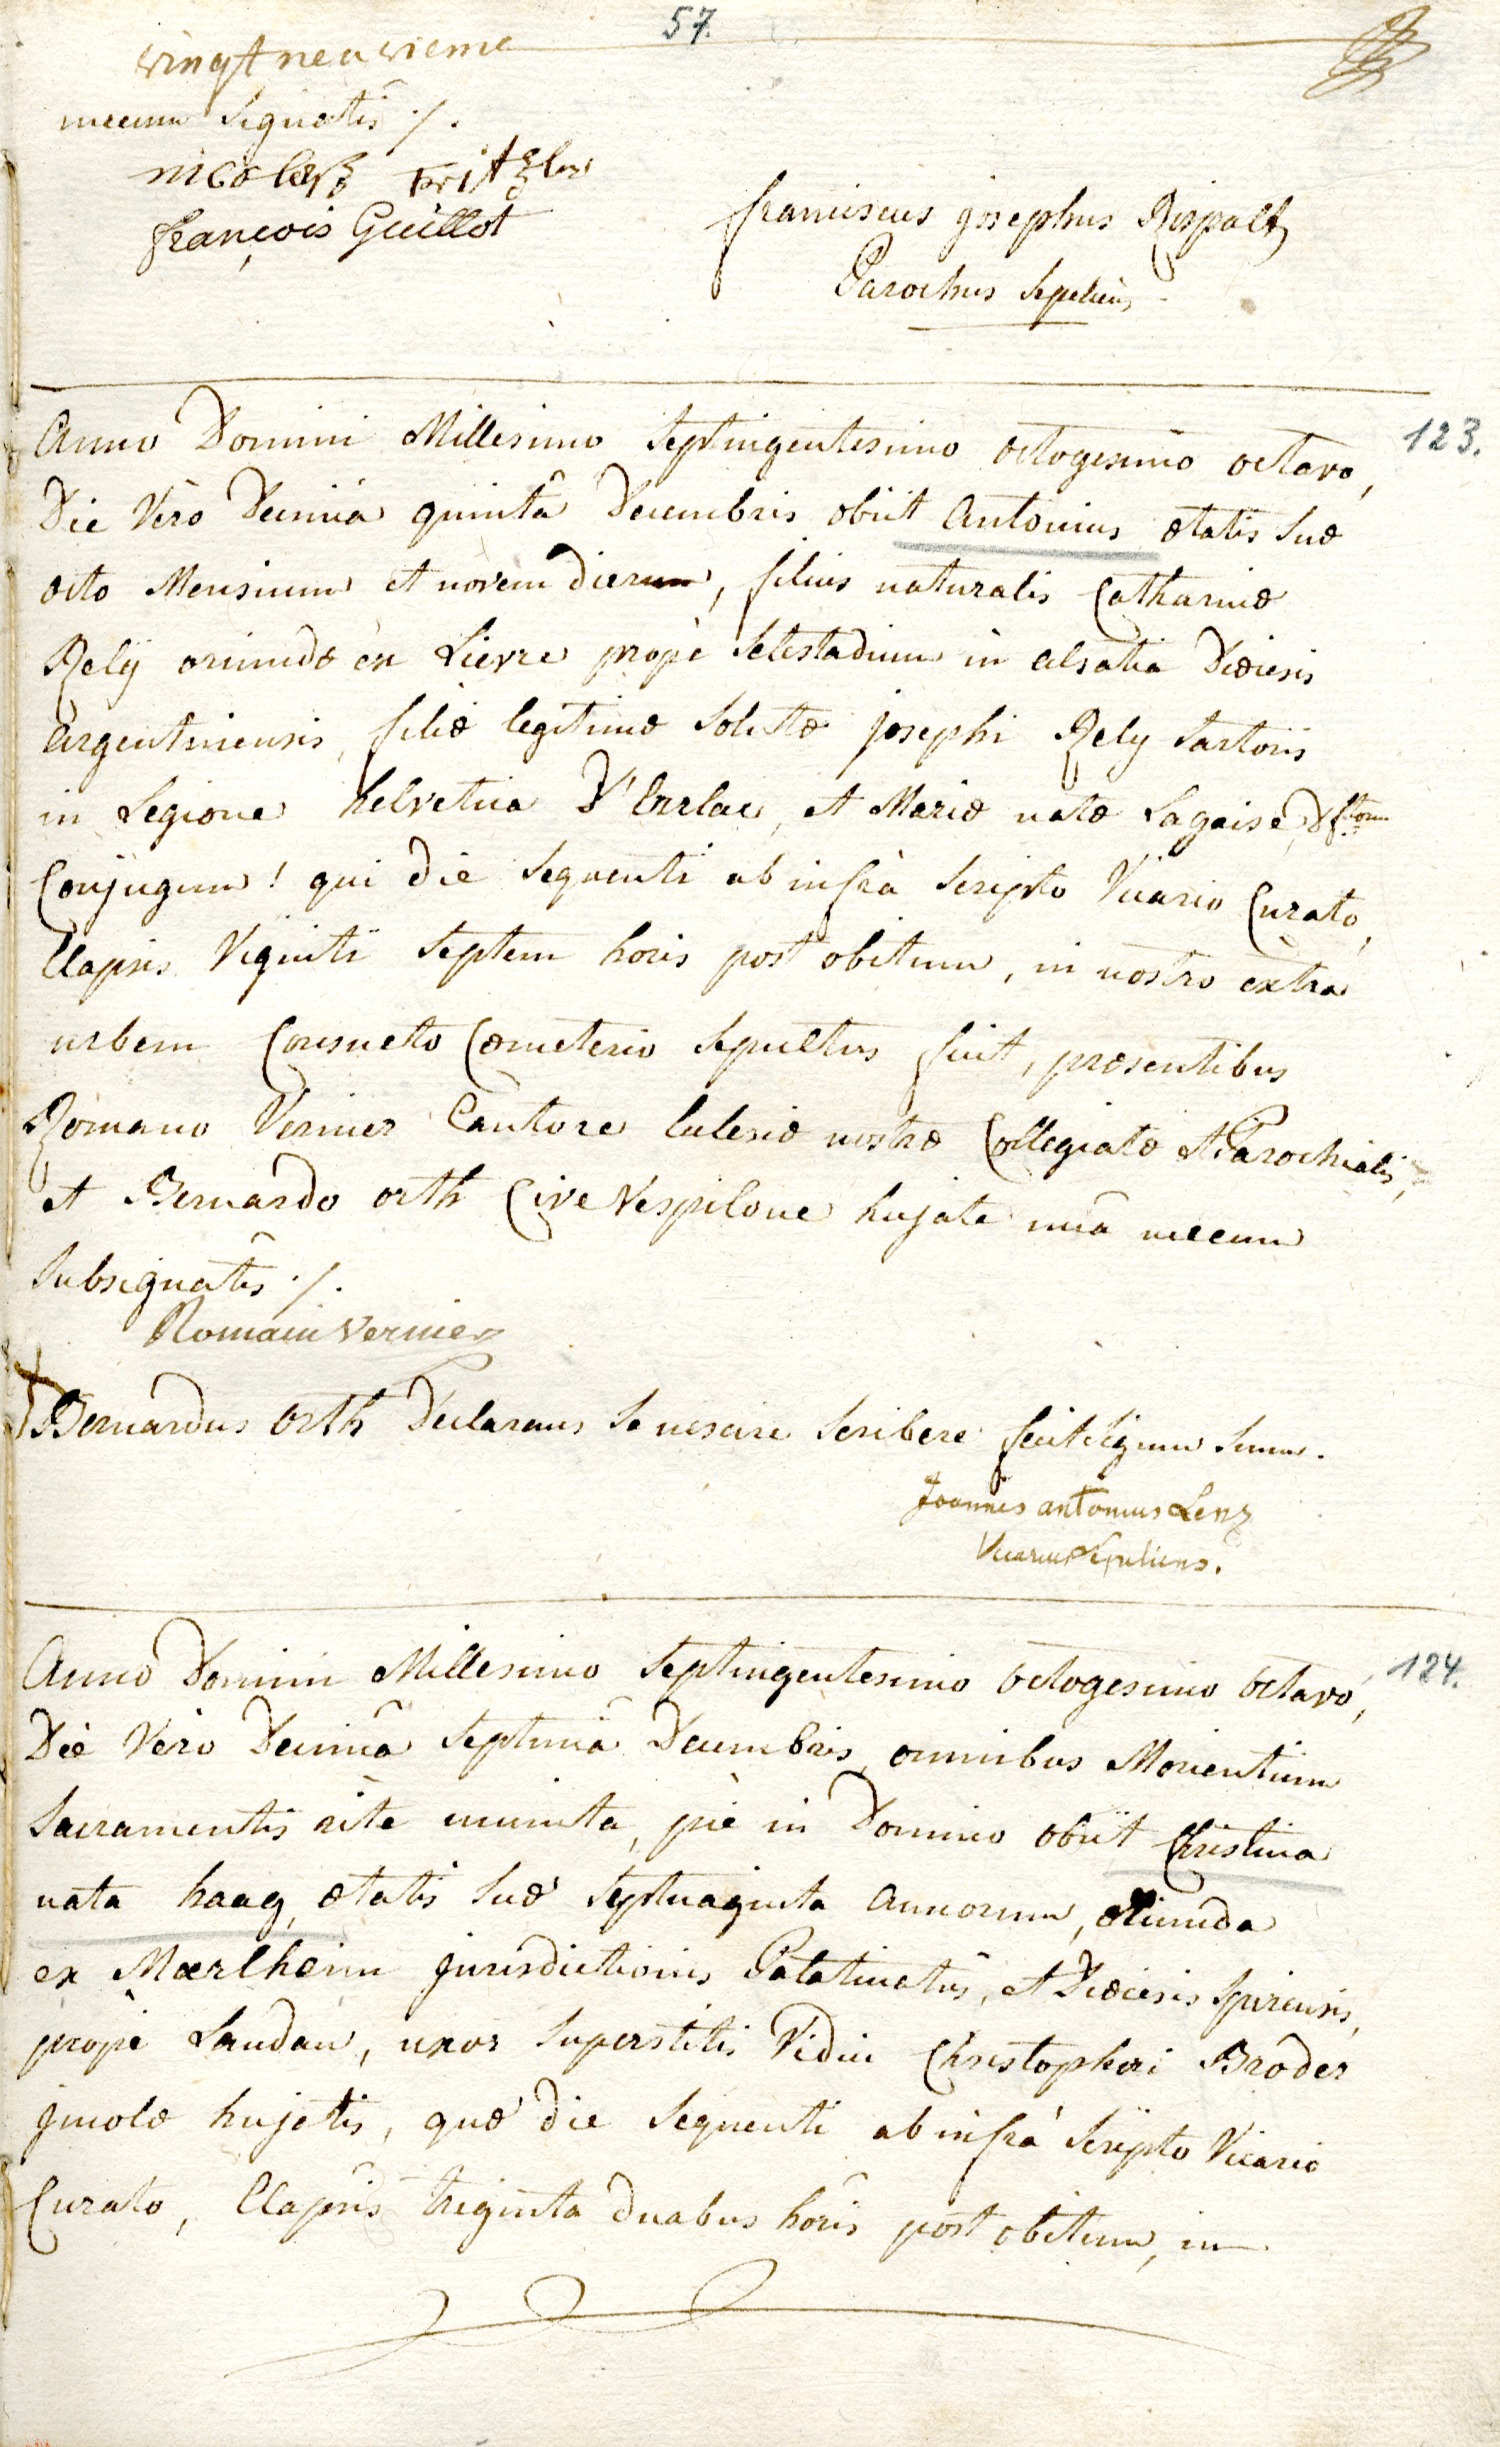 57.
vingt neuvieme
mecum Signatis ./.
nicolaß Fritzler
françois Guillot
franciscus josephus Rispalt
Parochus Sepeliens
123.
Anno Domini Millesimo Septingentesimo octogesimo octavo,
Die Vero Decimâ quintâ Decembris obiit Antonius ætatis Suæ
octo Mensium et novem dierum, filius naturalis Catharinæ
Rely oriundæ ex Lievre propè Selestadium in alsatia Diœcesis
argentinensis, filiæ legitimæ Solutæ josephi Rely Sartoris
in Legione helvetica D'Enrlac, et Mariæ natæ Lagaise, Dftorum
Conjugum! qui die Sequenti ab infrà Scripto Vicario Curato,
Elapsis Viginti Septem horis post obitum, in nostro extra
urbem Consueto Cœmeterio Sepultus fuit, præsentibus
Romano Vernier Cantore Ecclesiæ nostræ Collegiatæ et Parochialis,
et Bernardo orth Cive Vespilone hujate unà mecum
Subsignatis ./.
Romain vernier
Bernardus Orth Declarans Se nescire Scribere fecit Signum Suum.
Joannes antonius Lenz
Vicarius Sepeliens.
124.
Anno Domini Millesimo Septingentesimo Octogesimo Octavo,
Die Vero Decimâ Septimâ Decembris, omnibus Morientium
Sacramentis ritè munita, piè in Domino obiit Christina
nata haag, ætatis Suæ Septuaginta Annorum, oriunda
ex Mœrlheim jurisdictionis Palatinatûs, et Diœcesis Spirensis,
propè Landau, uxor Superstitis Vidui Christophori Broder
jncolæ hujatis, quæ die Sequenti ab infrà Scripto Vicario
Curato, Elapsis triginta duabus horis post obitum, in